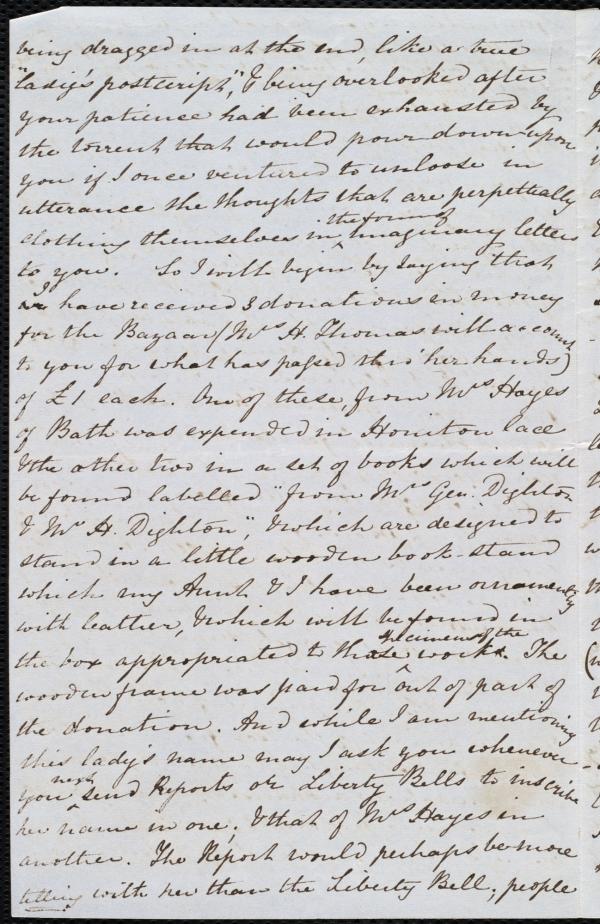 being dragged in at the end, like a true
"lady's postscript", & being overlooked after
your patience had been exhausted by
the torrent that would pour down upon
you if I once ventured to unloose in
utterance the thoughts that are perpetually
clothing themselves in ^the form of imaginary letters
to you. So I will begin by saying that
I have received 3 donations in money
for the Bazaar (Mrs H. Thomas will account
to you for what has passed thro' her hands)
of £1 each. One of these, from Mrs Hayes
of Bath was expended in Honiton lace
& the other two in a set of books which will
be found labelled "from Mrs Gen. Dighton
& Mrs H. Dighton", & which are designed to
stand in a little wooden book-stand
which my Aunt & I have been ornamenting
with leather, & which will be found in
the box appropriated to ^specimens of the work. The
wooden frame was paid for out of part of
the donation. And while I am mentioning
this lady's name may I ask you whenever
you ^next send Reports or Liberty Bells to inscribe
her name in one, & that of Mrs Hayes in
another. The Report would perhaps be more
telling with her than the Liberty Bell; people